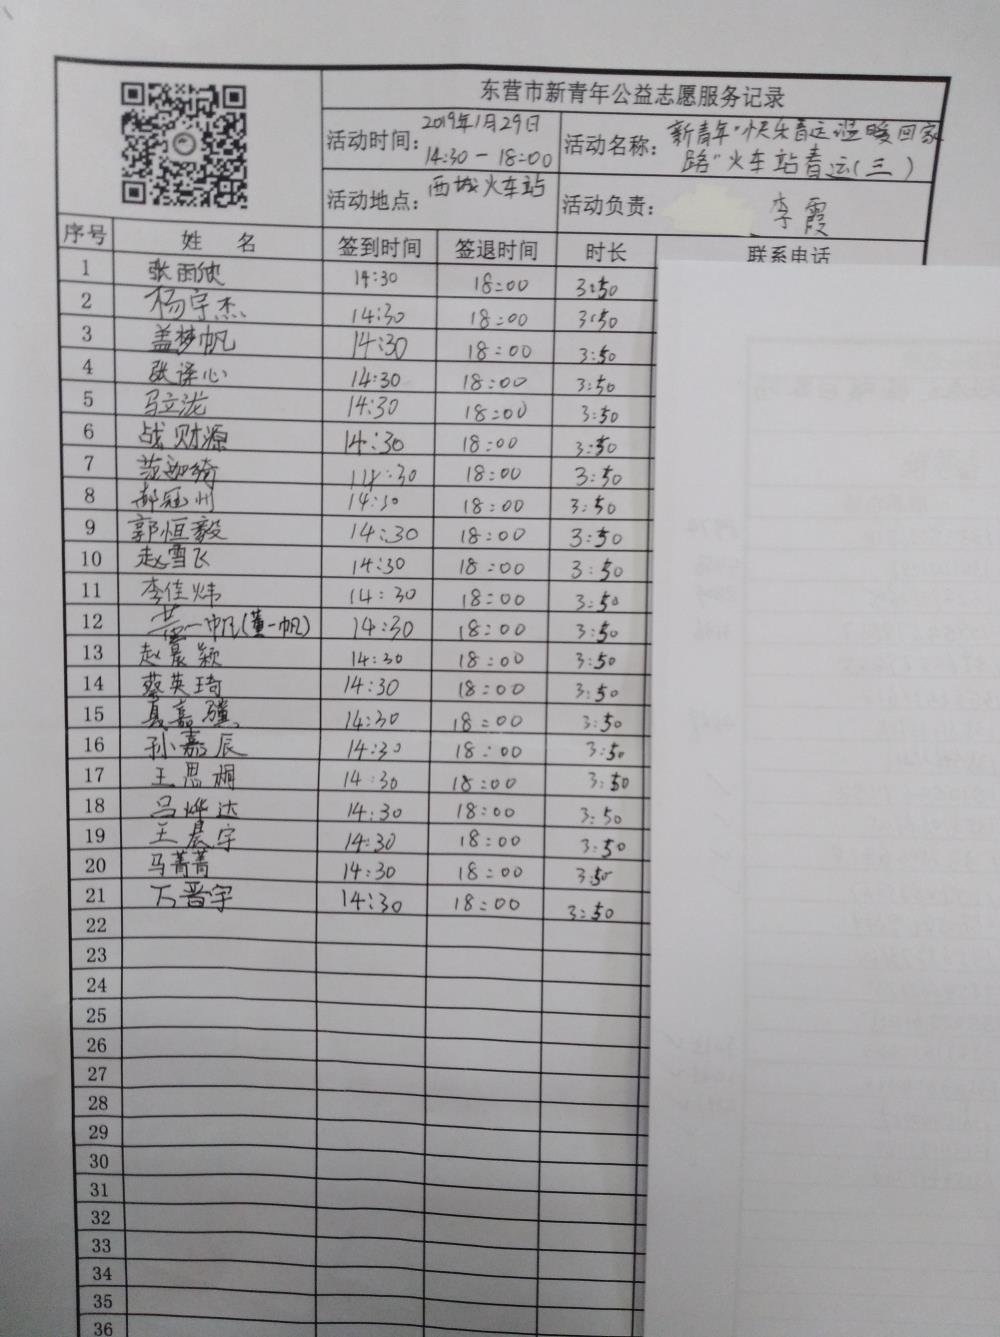 东营市新青年公益志愿服务记录
活动时间: 2019年1月29日 14:30-18:00 活动名称: 新青年"快乐春运温暖回家路"火车站春运(三)
活动地点: 西城火车站 活动负责: 李霞
序号 姓名 签到时间 签退时间 时长 联系电话
1 张雨 14:30 18:00 3:50
2 杨宇杰 14:30 18:00 3:50
3 盖梦帆 14:30 18:00 3:50
4 张译心 14:30 18:00 3:50
5 马立泷 14:30 18:00 3:50
6 战财源 14:30 18:00 3:50
7 14:30 18:00 3:50
8 郝冠州 14:30 18:00 3:50
9 郭恒毅 14:30 18:00 3:50
10 赵雪飞 14:30 18:00 3:50
11 李佳炜 14:30 18:00 3:50
12 董一帆(董一帆) 14:30 18:00 3:50
13 赵晨颖 14:30 18:00 3:50
14 蔡英琦 14:30 18:00 3:50
15 夏嘉骥 14:30 18:00 3:50
16 孙嘉辰 14:30 18:00 3:50
17 王思桐 14:30 18:00 3:50
18 吕烨达 14:30 18:00 3:50
19 王晨宇 14:30 18:00 3:50
20 马菁菁 14:30 18:00 3:50
21 万晋宇 14:30 18:00 3:50
22
23
24
25
26
27
28
29
30
31
32
33
34
35
36